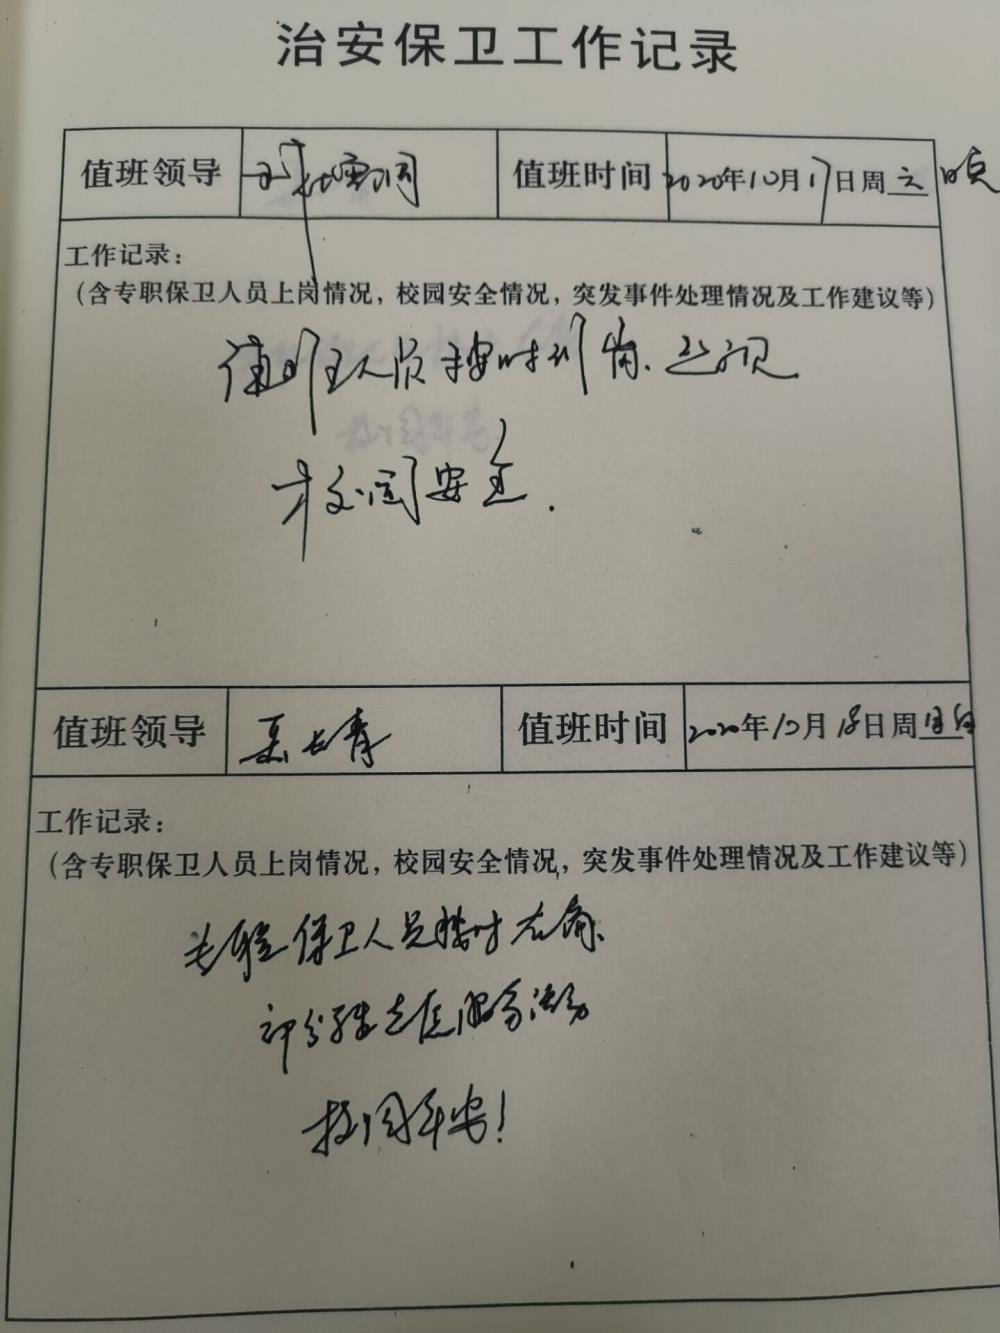 治安保卫工作记录
值班领导 值班时间 2020年10月17日周六
工作记录：
（含专职保卫人员上岗情况，校园安全情况，突发事件处理情况及工作建议等）
值班人员按时到岗、巡视
校园安全.
值班领导 长青 值班时间 2020年10月18日周日
工作记录：
（含专职保卫人员上岗情况，校园安全情况，突发事件处理情况及工作建议等）
专职保卫人员按时在岗、
部分
校园平安！